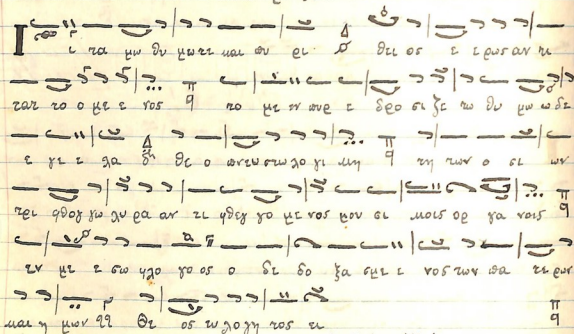 Ι ε τα μω θυ μω τε και πυ ρι θει ος ε ε ρως αν τι
τατ το ο με ε νος το με εν πυρ ε δρο σι ζε τω θυ μω ω δε
ε γε ε λα θε ο πνευστω λο γι κη τη των ο σι ων
τρι φθογ γω λυ ρα αν τι φθεγ γο με νος μου σι κοις ορ γα νοις
εν με ε σω φλο γο ος ο δε δο ξα σμε ε νος των πα τε ρων
και η μων Θε ος ευ λο γη τος ει